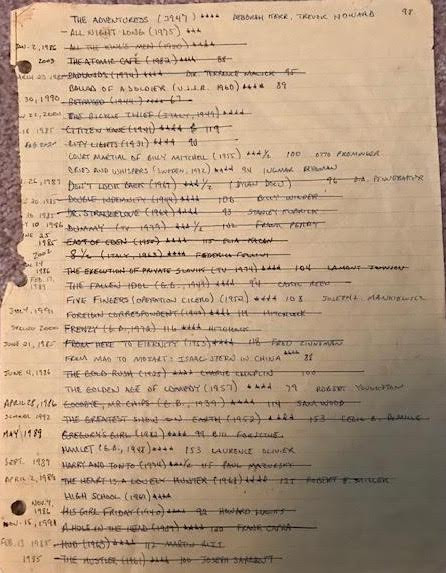 THE ADVENTURESS (1947) **** DEBORAH KERR, TREVOR HOWARD 98
- ALL NIGHT LONG (1975) ***
JAN. 2, 1986 ALL THE KING'S MEN (1950) ****
2003 THE ATOMIC CAFÉ (1982) **** 88
BADLANDS (1974) **** DIR. TERRENCE MALICK 95
BALLAD OF A SOLDIER (U.S.S.R. 1960) **** 89
30, 1990 BETRAYED (1944) *** 67
22, 2001 THE BICYCLE THIEF (ITALY, 1949) ****
1985 CITIZEN KANE (1941) **** 119
CITY LIGHTS (1931) **** 90
COURT MARTIAL OF BILLY MITCHELL (1955) ***½ 100 OTTO PREMINGER
CRIES AND WHISPERS (SWEDEN, 1972) **** 94 INGMAR BERGMAN
26, 1987 DON'T LOOK BACK (1967) ***½ (DYLAN DOCU) 96 D.A. PENNEBAKER
1985 DOUBLE INDEMNITY (1944) **** 106 BILLY WILDER
1985 DR. STRANGELOVE (1964) **** 93 STANLEY KUBRICK
10 1986 DUMMY (TV 1979) ***½ 102 FRANK PERRY
25 1985 EAST OF EDEN (1955) **** 115 ELIA KAZAN
2002 8½ (ITALY, 1963) **** FEDERICO FELLINI
THE EXECUTION OF PRIVATE SLOVIK (TV 1974) **** 104 LAMONT JOHNSON
FEB. 17, 1989 THE FALLEN IDOL (G.B., 1949) **** 94 CAROL REED
FIVE FINGERS (OPERATION CICERO) (1952) **** 108 JOSEPH L. MANKIEWICZ
JULY, 1991 FOREIGN CORRESPONDENT (1940) **** 119 HITCHCOCK
2000 FRENZY (G.B., 1972) 116 **** HITCHCOCK
JUNE 21, 1985 FROM HERE TO ETERNITY (1953) **** 118 FRED ZINNEMAN
FROM MAO TO MOZART: ISAAC STERN IN CHINA **** 88
JUNE 4, 1986 THE GOLD RUSH (1925) **** CHARLIE CHAPLIN 100
THE GOLDEN AGE OF COMEDY (1957) **** 79 ROBERT YOUNGSON
APRIL 28, 1986 GOODBYE, MR. CHIPS (G.B., 1939) **** 114 SAM WOOD
SUMMER 1992 THE GREATEST SHOW ON EARTH (1952) **** 153 CECIL B. DEMILLE
MAY 1989 GREGORY'S GIRL (1982) **** 99 BILL FORSYTHE
HAMLET (G.B., 1948) **** 153 LAURENCE OLIVIER
SEPT. 1987 HARRY AND TONTO (1974) ***½ 115 PAUL MAZURSKY
APRIL 2, 1986 THE HEART IS A LONELY HUNTER (1968) **** 125 ROBERT E. MILLER
HIGH SCHOOL (1969) ****
NOV. 7, 1986 HIS GIRL FRIDAY (1940) **** 92 HOWARD HAWKS
NOV. 15, 1991 A HOLE IN THE HEAD (1959) *** 120 FRANK CAPRA
FEB. 13, 1985 HUD (1963) **** 112 MARTIN RITT
1985 THE HUSTLER (1961) **** 100 JOSEPH SARGENT